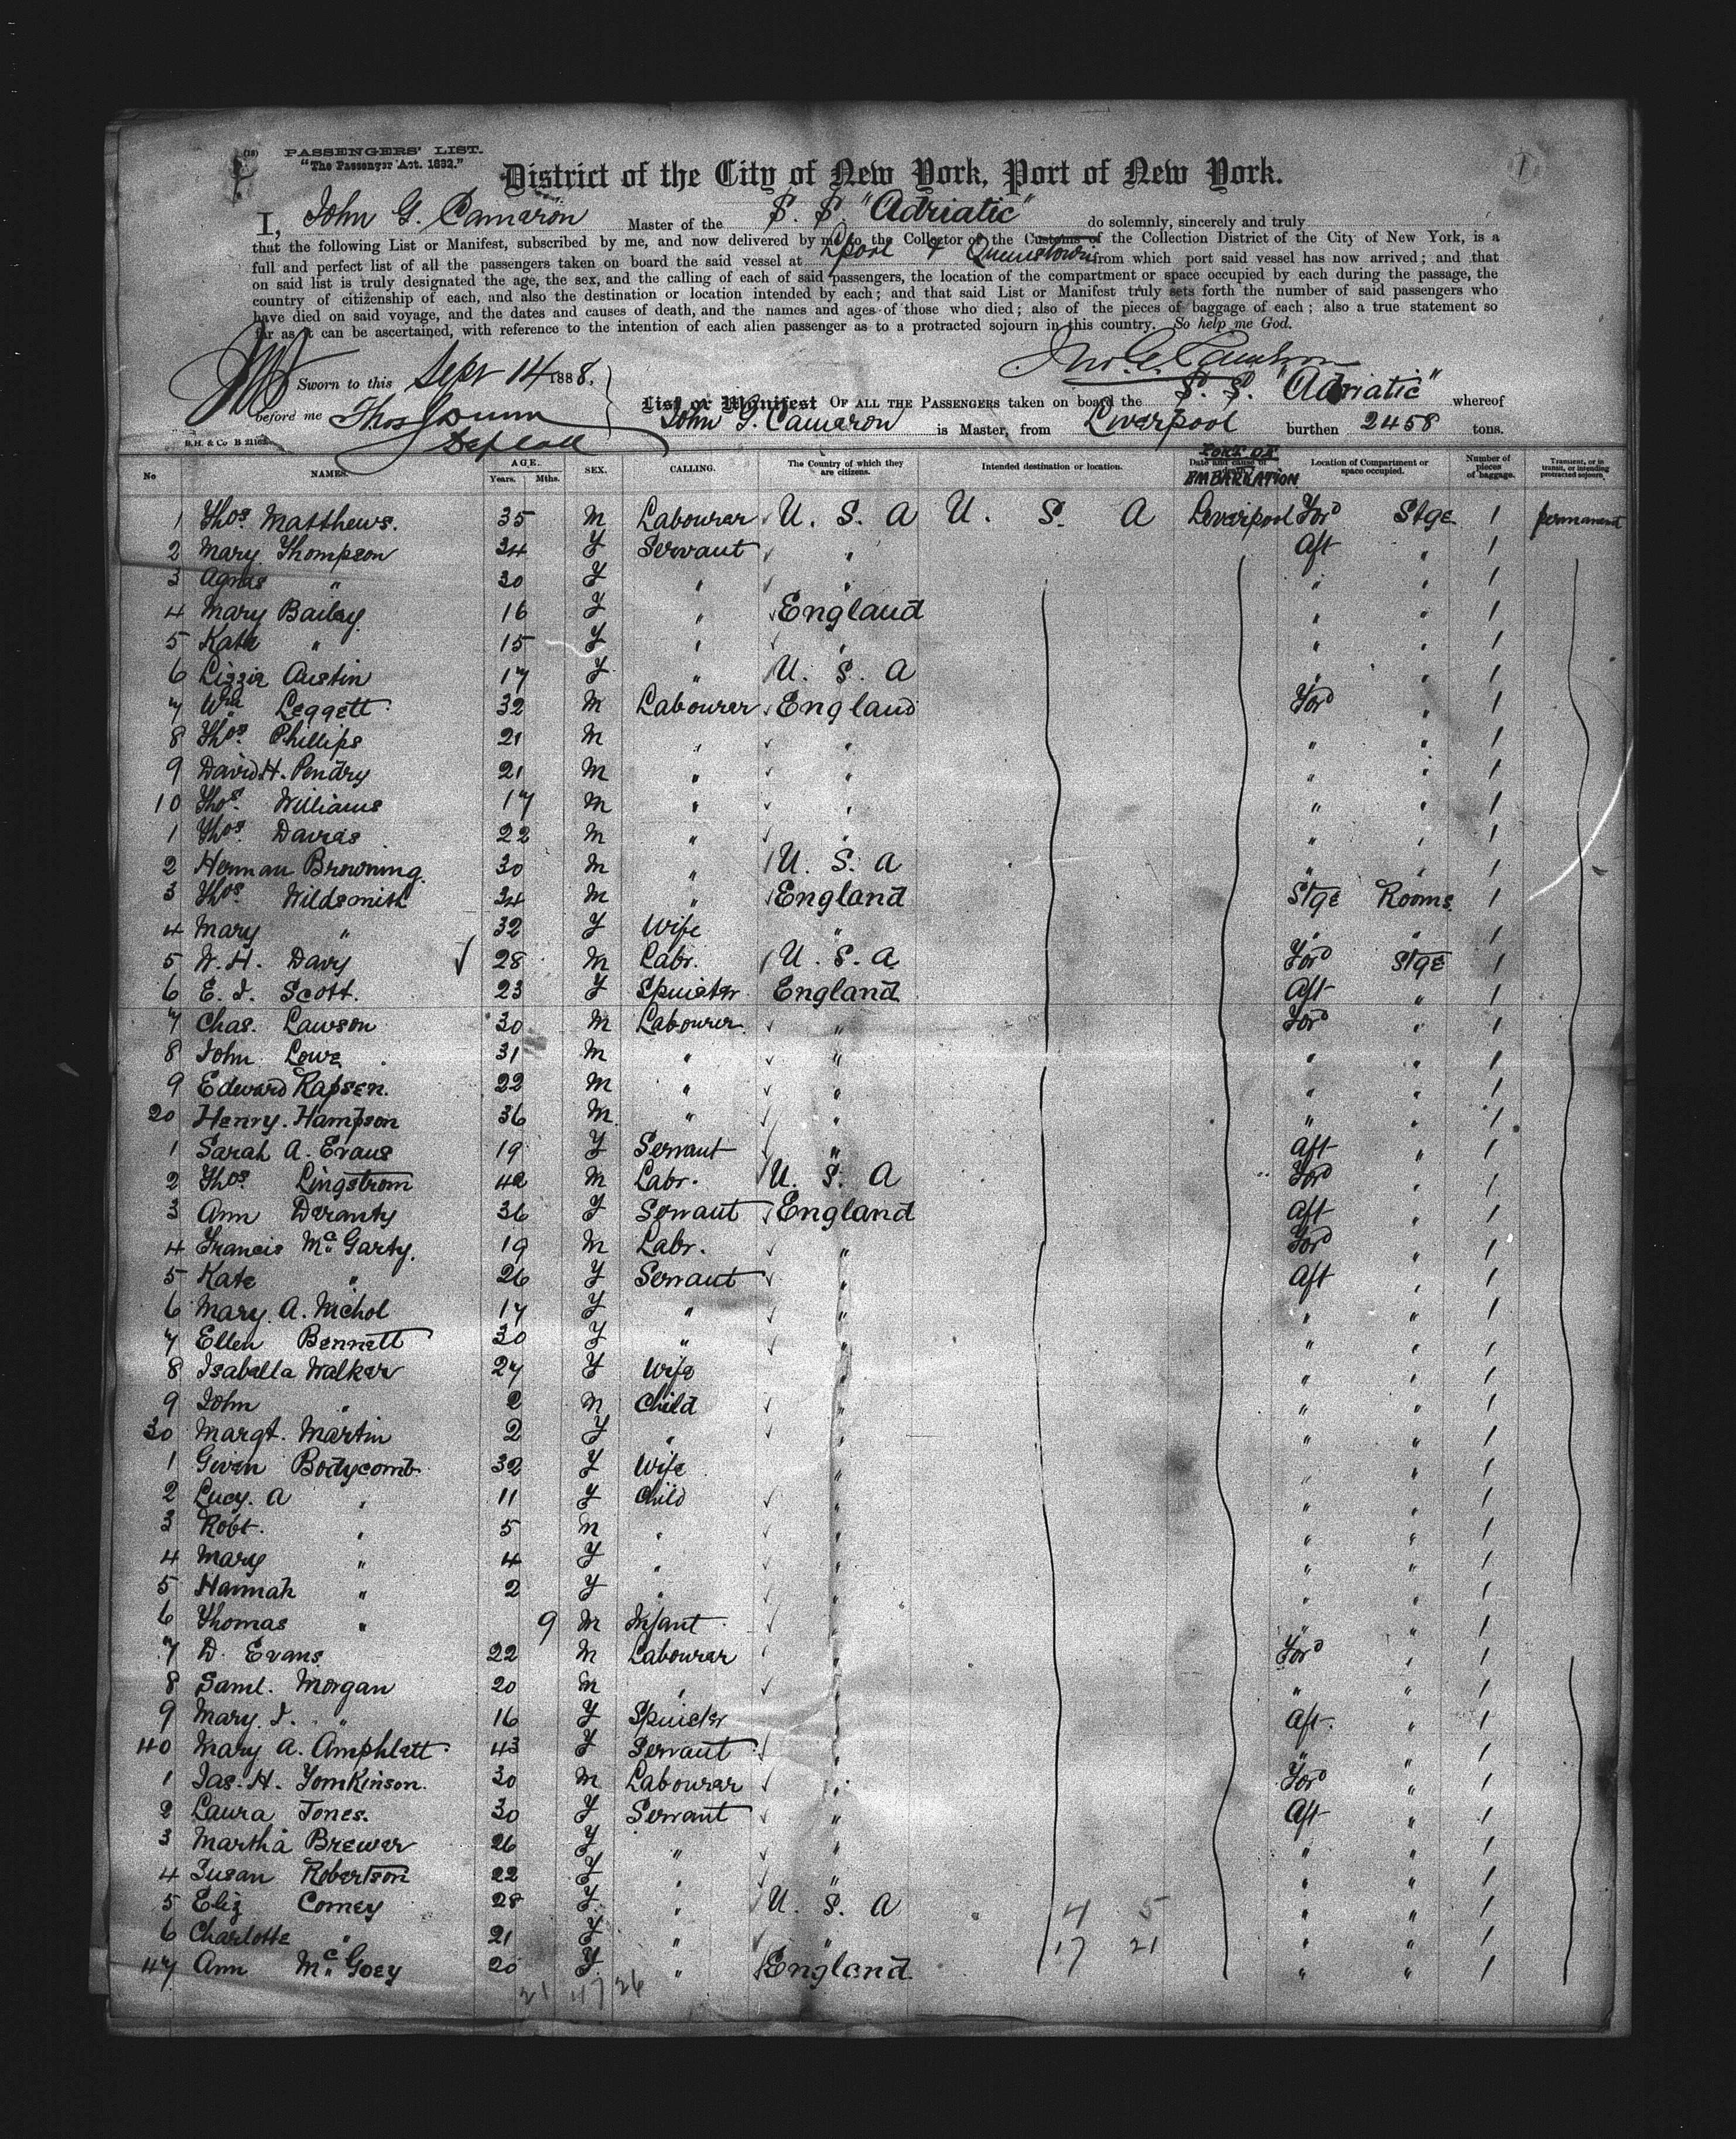 (18) PASSENGERS' LIST.
"The Passenger Act. 1882."
1
District of the City of New York, Port of New York.
I, John G. Cameron Master of the S. S. "Adriatic" do solemnly, sincerely and truly
that the following List or Manifest, subscribed by me, and now delivered by me to the Collector of the Customs of the Collection District of the City of New York, is a
full and perfect list of all the passengers taken on board the said vessel at Lpool & Queenstown from which port said vessel has now arrived; and that
on said list is truly designated the age, the sex, and the calling of each of said passengers, the location of the compartment or space occupied by each during the passage, the
country of citizenship of each, and also the destination or location intended by each; and that said List or Manifest truly sets forth the number of said passengers who
have died on said voyage, and the dates and causes of death, and the names and ages of those who died; also of the pieces of baggage of each; also a true statement so
far as it can be ascertained, with reference to the intention of each alien passenger as to a protracted sojourn in this country. So help me God.
Jno. G. Cameron
Sworn to this Sept 14 1888.
before me Thos
List or Manifest OF ALL THE PASSENGERS taken on board the S. S. "Adriatic" whereof
John G. Cameron is Master, from Liverpool burthen 2458 tons.
B.H. & Co B 21163
No NAMES. AGE. Years. Mths. SEX. CALLING. The Country of which they are citizens. Intended destination or location. Date and cause of PORT OF EMBARKATION Location of Compartment or space occupied. Number of pieces of baggage. Transient, or in transit, or intending protracted sojourn.
1 Thos Matthews. 35 M Labourer U. S. A U. S. A Liverpool Ford Stge 1 permanent
2 Mary Thompson 34 F Servaut " Aft " 1
3 Agnes " 30 F " " " " 1
4 Mary Bailey 16 F " England " " 1
5 Kate " 15 F " " " " 1
6 Lizzie Austin 17 F " U. S. A " " 1
7 Wm Leggett 32 M Labourer England Ford " 1
8 Thos Phillips 21 M " " " " 1
9 David H. Pendry 21 M " " " " 1
10 Thos. Williams 17 M " " " " 1
1 Thos. Davies 22 M " " " " 1
2 Herman Browning 30 M " U. S. A " " 1
3 Thos. Wildsmith 34 M " England Stge Rooms 1
4 Mary " 32 F Wife " " " 1
5 W. H. Davy 28 M Labr. U. S. A Ford Stge 1
6 E. J. Scott. 23 F Spinster England Aft " 1
7 Chas. Lawson 30 M Labourer " Ford " 1
8 John Lowe 31 M " " " " 1
9 Edward Rapsen. 22 M " " " " 1
20 Henry. Hampson 36 M " " " " 1
1 Sarah A. Evans 19 F Servant " Aft " 1
2 Thos. Lingstrom 42 M Labr. U. S. A Ford " 1
3 Ann Deranty 36 F Servant England Aft " 1
4 Francis McGarty. 19 M Labr. " Ford " 1
5 Kate " 26 F Servant " Aft " 1
6 Mary A. Nichol 17 F " " " " 1
7 Ellen Bennett 30 F " " " " 1
8 Isabella Walker 27 F Wife " " " 1
9 John " 2 M Child " " " 1
30 Margt. Martin 2 F " " " " 1
1 Gwen Bodycomb 32 F Wife " " " 1
2 Lucy. A " 11 F Child " " " 1
3 Robt. " 5 M " " " " 1
4 Mary " 4 F " " " " 1
5 Hannah " 2 F " " " " 1
6 Thomas " 9 M Infant " " " 1
7 D. Evans 22 M Labourer " Ford " 1
8 Saml. Morgan 20 M " " " " 1
9 Mary J. " 16 F Spinster " Aft. " 1
40 Mary A. Amphlett 43 F Servant " " " 1
1 Jas. H. Tomkinson. 30 M Labourer " Ford " 1
2 Laura Jones. 30 F Servant " Aft " 1
3 Martha Brewer 26 F " " " " 1
4 Susan Robertson 22 F " " " " 1
5 Eliz Comey 28 F " U. S. A 4 5 " " 1
6 Charlotte " 21 F " " 17 21 " " 1
47 Ann McGoey 20 F " England " " 1
21 47 26